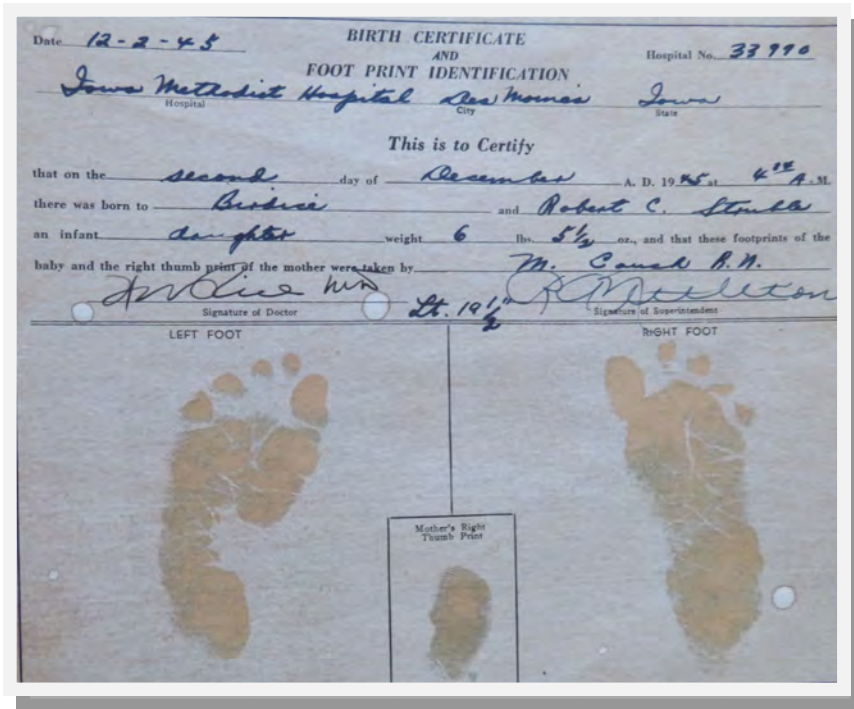 Date 12-2-45 BIRTH CERTIFICATE
AND Hospital No. 33990
FOOT PRINT IDENTIFICATION
Iowa Methodist Hospital Des Moines Iowa
Hospital City State
This is to Certify
that on the second day of December A. D. 1945 at 4 A. M.
there was born to Birdice and Robert C. Struble
an infant daughter weight 6 lbs. 5 1/2 oz., and that these footprints of the
baby and the right thumb print of the mother were taken by M. Couch R.N.
Signature of Doctor Lt. 19 1/2" Signature of Superintendent
LEFT FOOT RIGHT FOOT
Mother's Right
Thumb Print